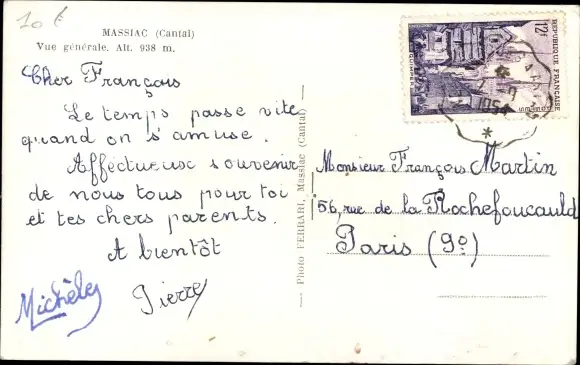 10 €
MASSIAC (Cantal)
Vue générale. Alt. 938 m.
Cher François
Le temps passe vite
quand on s'amuse.
Affectueux souvenir
de nous tous pour toi
et tes chers parents.
A bientôt
Pierre
Michèle
Photo FERRARI, Massiac (Cantal)
12f
REPUBLIQUE FRANÇAISE
QUIMPER
1954
Monsieur François Martin
56, rue de la Rochefoucauld
Paris (9º)